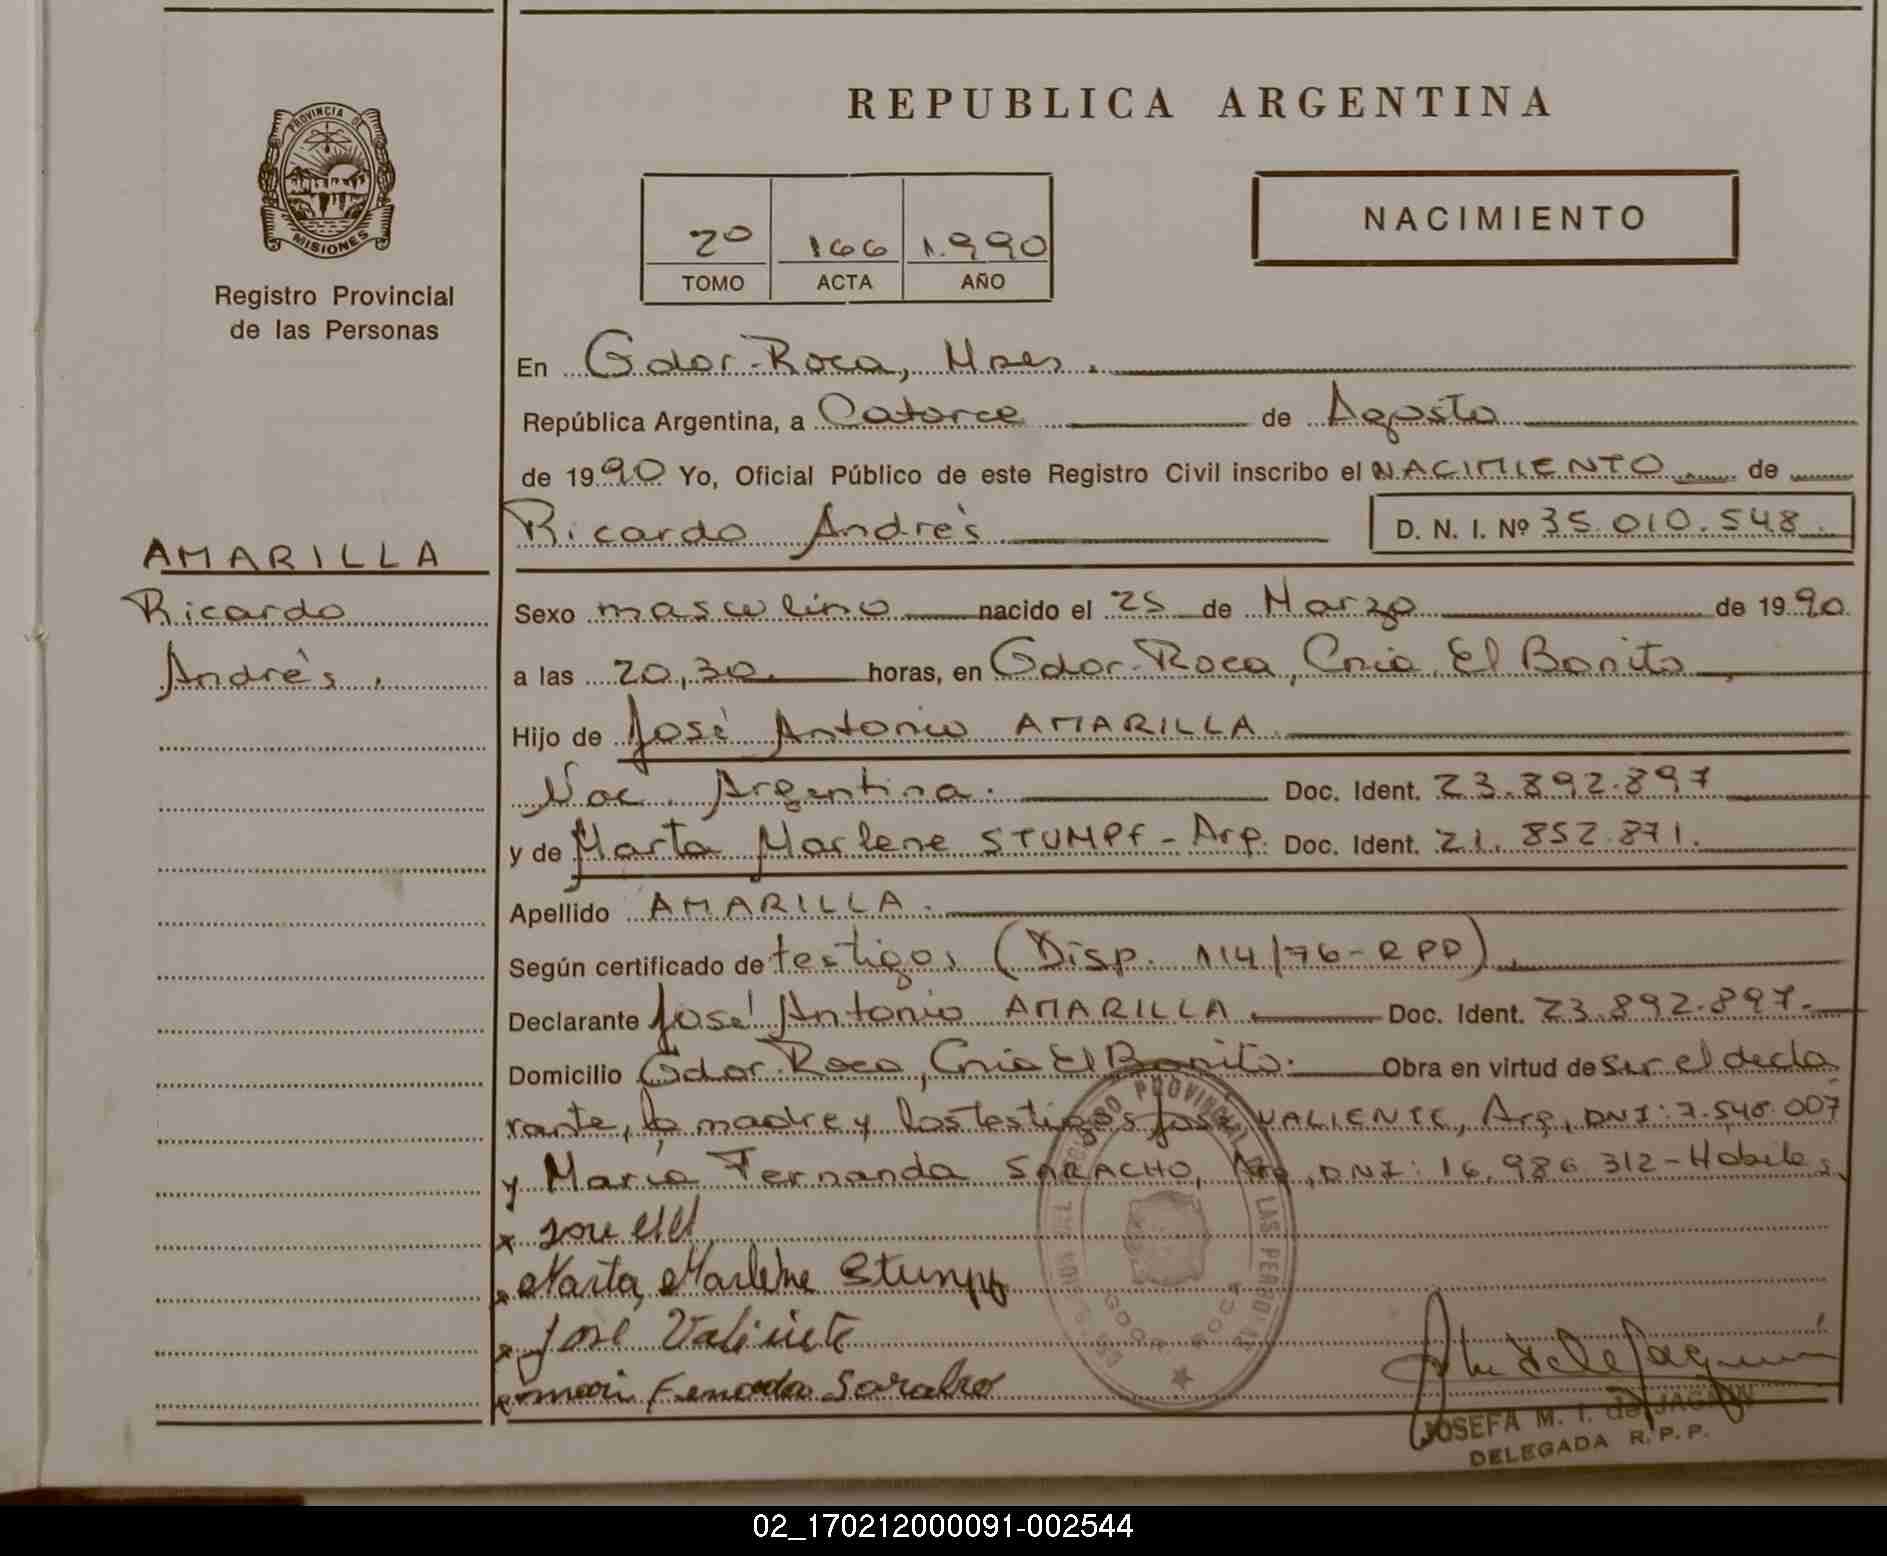 PROVINCIA DE
MISIONES
Registro Provincial
de las Personas
AMARILLA
Ricardo
Andrés.
REPUBLICA ARGENTINA
2º 166 1.990
TOMO ACTA AÑO
NACIMIENTO
En Gdor. Roca, Mnes.
República Argentina, a Catorce de Agosto
de 1990 Yo, Oficial Público de este Registro Civil inscribo el NACIMIENTO de
Ricardo Andrés D. N. I. Nº 35.010.548.
Sexo masculino nacido el 25 de Marzo de 1990
a las 20,30. horas, en Gdor. Roca, Cnia. El Bonito
Hijo de José Antonio AMARILLA
Nac. Argentina. Doc. Ident. 23.892.897
y de Marta Marlene STUMPF - Arg. Doc. Ident. 21.852.871.
Apellido AMARILLA.
Según certificado de testigos (Disp. 114/76-RPP).
Declarante José Antonio AMARILLA. Doc. Ident. 23.892.897.
Domicilio Gdor. Roca, Cnia El Bonito. Obra en virtud de ser el decla
rante, la madre y los testigos José VALIENTE, Arg, DNI: 7.548.007
y María Fernanda SARACHO, Arg, DNI: 16.986.312 - Hábiles
x
x Marta Marlene Stumpf
x José Valiente
x Fernanda Saracho
PROVINCIAL LAS PERSONAS
GDOR ROCA
JOSEFA M. I. de JAGAN
DELEGADA R. P. P.
02_170212000091-002544